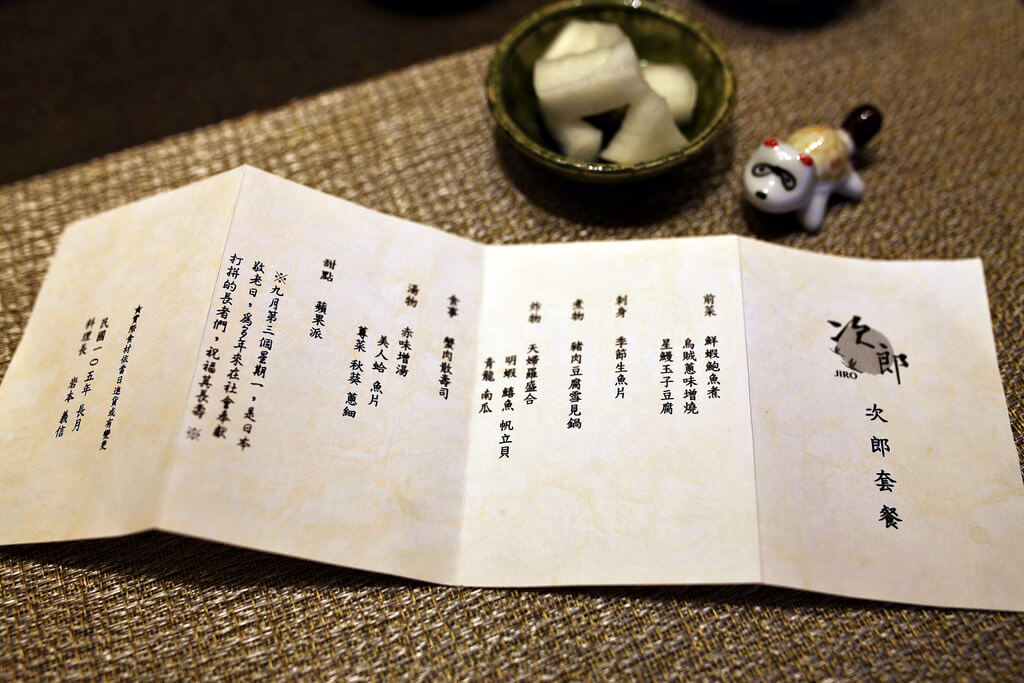 次郎
JIRO
次郎套餐
前菜 鮮蝦鮑魚煮
烏賊蔥味增燒
星鰻玉子豆腐
刺身 季節生魚片
煮物 豬肉豆腐雪見鍋
炸物 天婦羅盛合
明蝦 鱚魚 帆立貝
青龍 南瓜
食事 蟹肉散壽司
湯物 赤味增湯
美人蛤 魚片
蓴菜 秋葵 蔥細
甜點 蘋果派
※九月第三個星期一，是日本
敬老日，為多年來在社會奉獻
打拼的長者們，祝福其長壽 ※
★實際食材依當日進貨或有變更
民國一〇五年 長月
料理長 岩本 義信